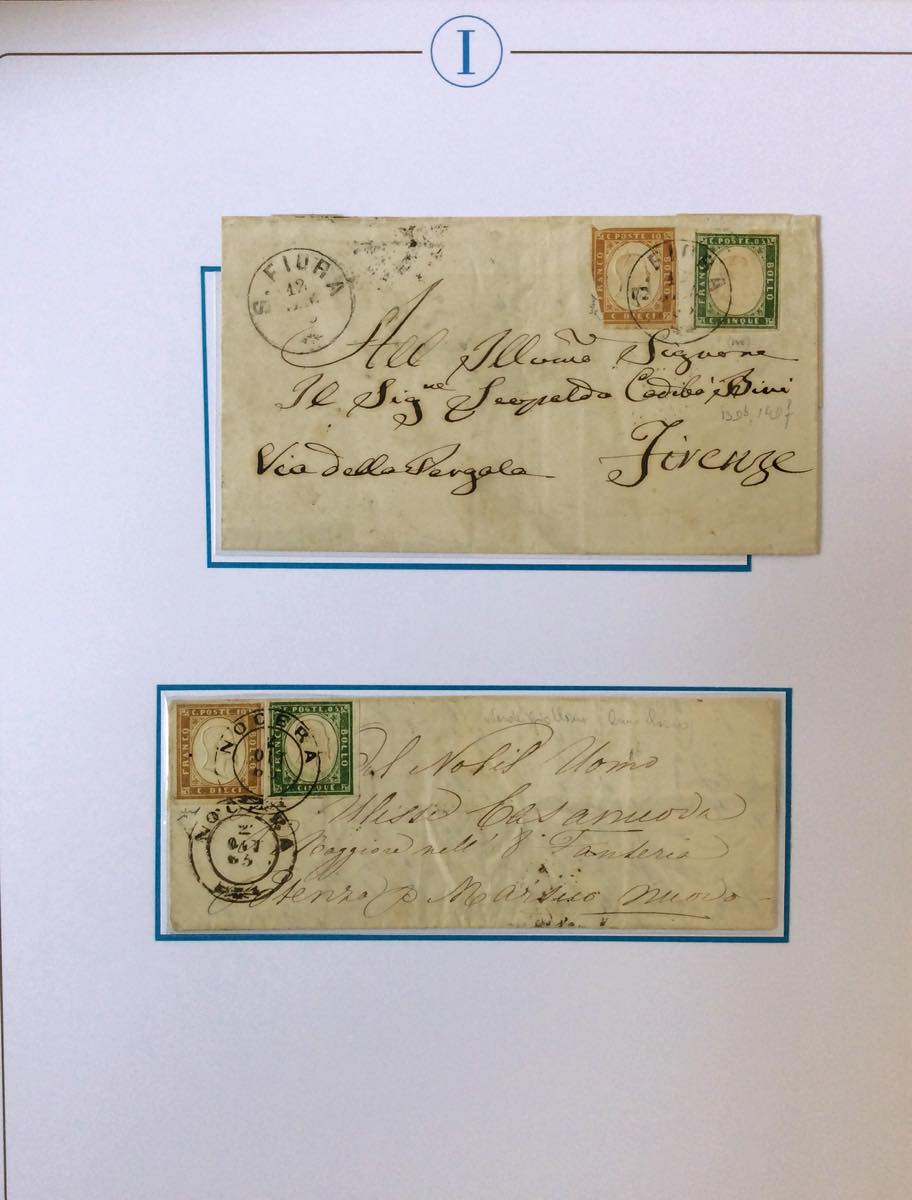 I
S. FIORA
12
C. POSTE 10
FRANCO
BOLLO
C. DIECI
C. POSTE 05
FRANCO
BOLLO
C. CINQUE
S. FIORA
All Illõmo Signore
Il Sig.ne Leopoldo Cadibò Bini
Via della Pergola
Firenze
C. POSTE 10
FRANCO
BOLLO
C. DIECI
C. POSTE 05
FRANCO
BOLLO
C. CINQUE
NOCERA
NOCERA
2
OTT
63
Al Nobil Uomo
Ulisse Casanuova
Maggiore nell' 8° Fanteria
Potenza p Marsico nuovo